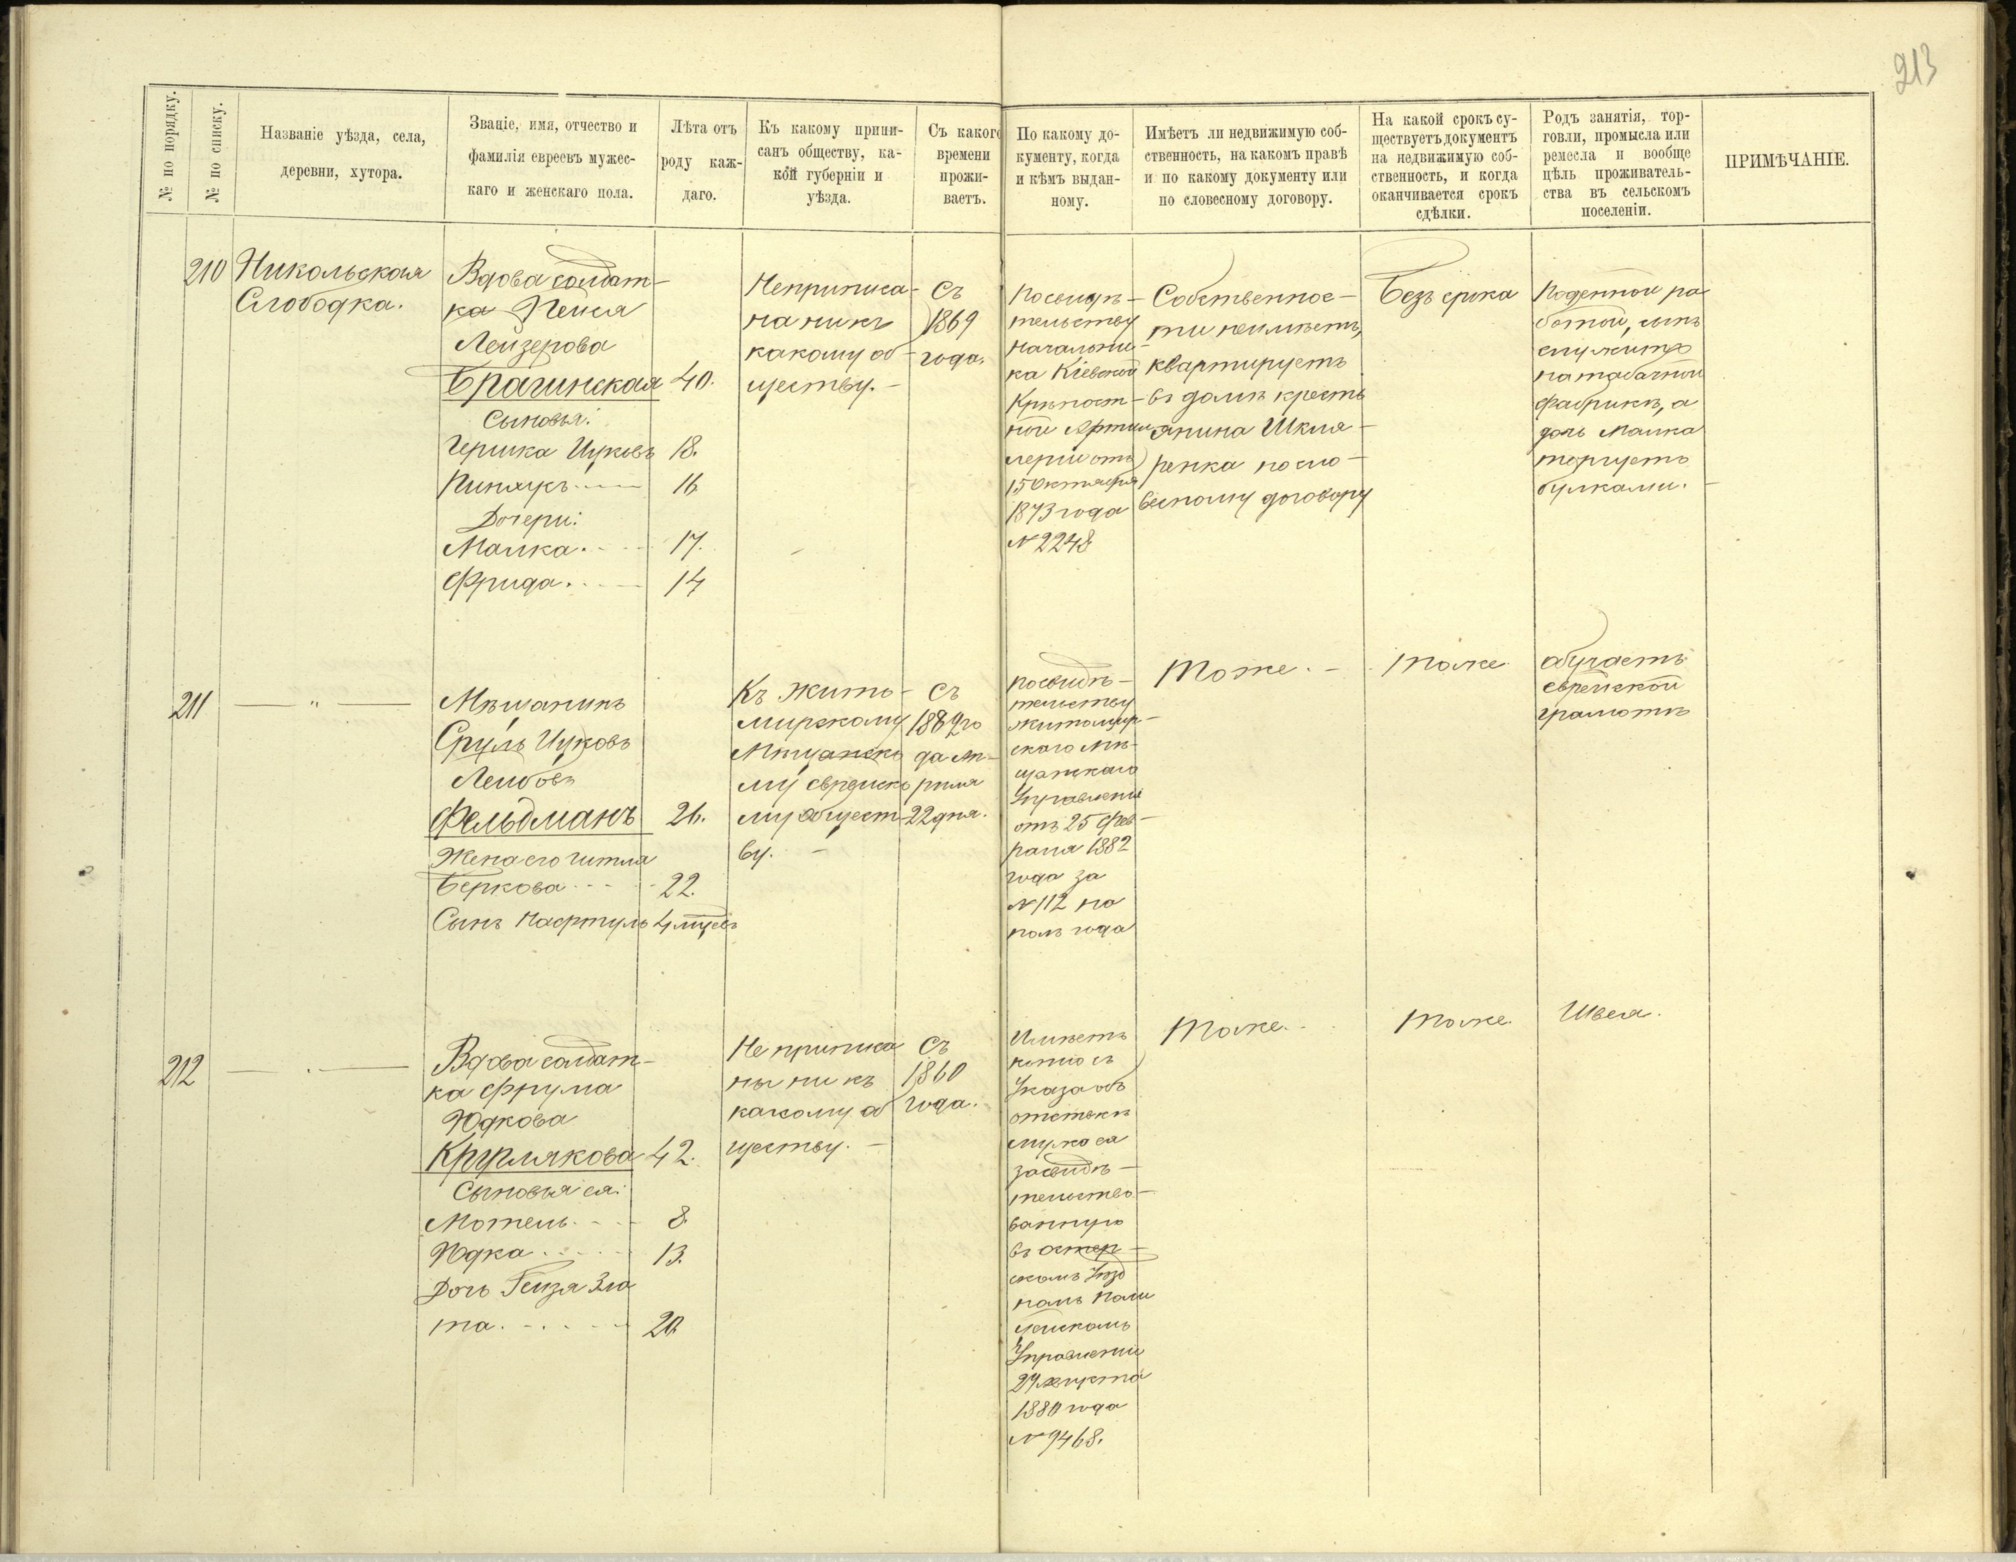 213
№ по порядку.
№ по списку.
Названіе уѣзда, села,
деревни, хутора.
Званіе, имя, отчество и
фамилія евреевъ мужес-
каго и женскаго пола.
Лѣта отъ
роду каж-
даго.
Къ какому припи-
санъ обществу, ка-
кой губерніи и
уѣзда.
Съ какого
времени
прожи-
ваетъ.
По какому до-
кументу, когда
и кѣмъ выдан-
ному.
Имѣетъ ли недвижимую соб-
ственность, на какомъ правѣ
и по какому документу или
по словесному договору.
На какой срокъ су-
ществуетъ документъ
на недвижимую соб-
ственность, и когда
оканчивается срокъ
сдѣлки.
Родъ занятія, тор-
говли, промысла или
ремесла и вообще
цѣль проживатель-
ства въ сельскомъ
поселеніи.
ПРИМѢЧАНІЕ.
210
Никольская
Слободка.
Вдова солдат-
ка Пейся
Лейзерова
Брагинская 40.
Сыновья:
Гершка Ицковъ 18.
Пинхусъ 16
Дочери:
Малка 17.
Фрида 14
Неприписа-
на никъ
какому об-
ществу.
Съ
1869
года.
По свидѣ-
тельству
Начальни-
ка Кіевской
Крѣпост-
ной Артил
леріи отъ
15 Октября
1873 года
№ 2248
Собственнос-
ти неимѣетъ,
квартируетъ
въ домѣ кресть
янина Шкля-
ренка по сло-
весному договору
Безъ срока
Поденной ра
ботой, сынъ
служитъ
на табачной
фабрикѣ, а
дочь Малка
торгуетъ
булками.
211
— " —
Мѣщанинъ
Сруль Ицковъ
Лейбовъ
Фельдманъ 26.
Жена его Гитля
Беркова 22.
Сынъ Нафтуль 4 мѣсяц
Къ Жито-
мирскому
Мѣщанско
му еврейско
му общест-
ву.
Съ
1882 го
да Ап-
рѣля
22 дня.
По свидѣ-
тельству
Житомир-
скаго Мѣ-
щанскаго
Управленія
отъ 25 Фев-
раля 1882
года за
№ 112 на
полъ года
Тоже.
Тоже
обучаетъ
еврейской
грамотѣ
212
— " —
Вдова солдат-
ка Фрума
Юдкова
Круглякова 42.
Сыновья ея:
Мотель 8
Юдка 13.
Дочь Гейзя Зла
та 20
Не приписа
ны никъ
какому об
ществу.
Съ
1860
года.
Имѣетъ
копію съ
Указа объ
отставкѣ
мужа ея
засвидѣ-
тельство-
ванную
въ Остер-
скомъ Уѣзд
номъ Поли
цейскомъ
Управленіи
29 Августа
1880 года
№ 9468.
Тоже.
Тоже.
Швея.